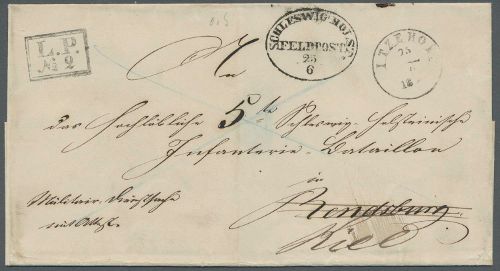 L.P.
№ 2
SCHLESWIG HOLST.
FELDPOST.
25
6
ITZEHOE
25
An
das Hochlöbliche 5te Schleswig-Holsteinische
Infanterie-Bataillon
in
Militair. Dienstsache
Rendsburg
mit Akten.
Kiel